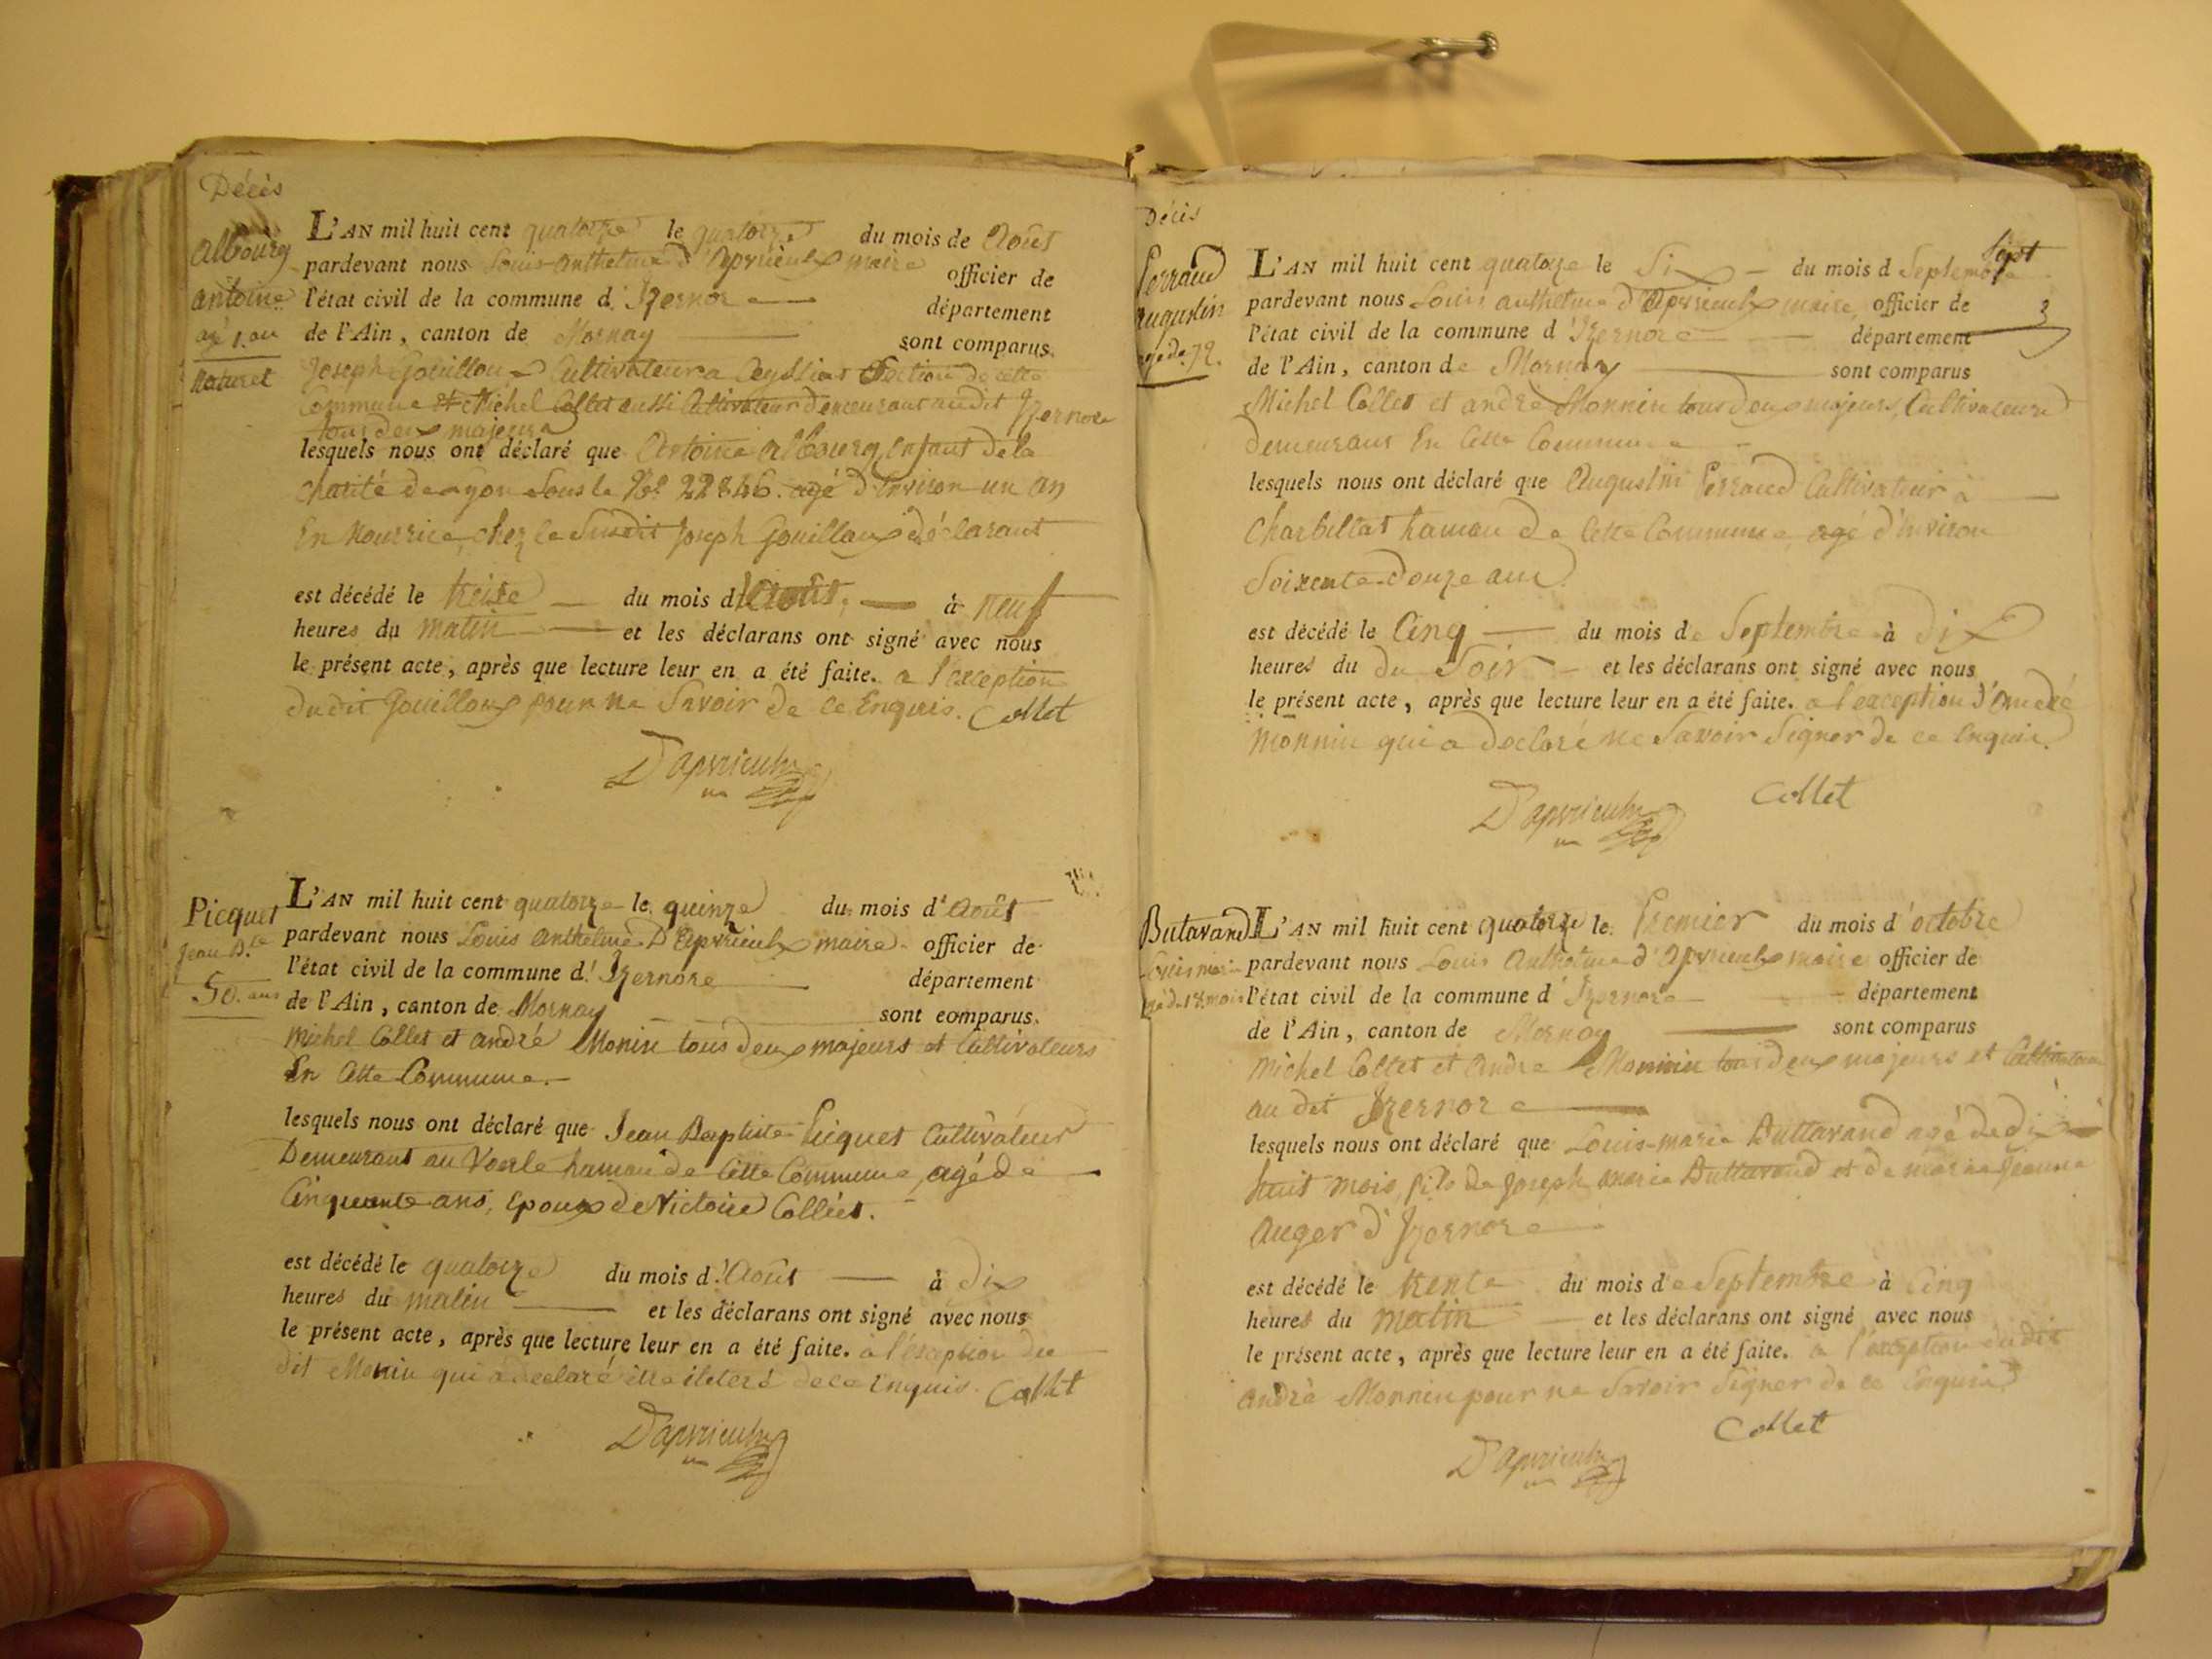 Décès
albourg
antoine
agé 1. an
Naturel
L'AN mil huit cent quatorze le quatorze du mois de Août
pardevant nous Louis anthelme d'Apvrieulx maire officier de
l'état civil de la commune d'Izernore département
de l'Ain, canton de Mornay sont comparus.
Joseph Gouilloux Cultivateur a Ceyssiat Section de cette
Commune et Michel Collet aussi Cultivateur demeurant audit Izernore
tous deux majeurs
lesquels nous ont déclaré que Antoine albourg, enfant de la
charité de Lyon Sous le No. 22846. agé d'Environ un an
En Nourrice, chez le Susdit Joseph Gouilloux déclarant
est décédé le treize du mois d'Août, à neuf
heures du matin et les déclarans ont signé avec nous
le présent acte, après que lecture leur en a été faite. a l'exception
dudit Gouilloux pour ne Savoir de ce Enquis. Collet
D'apvrieulx
Picquet
Jean B.te
50. ans
L'AN mil huit cent quatorze le quinze du mois d'Août
pardevant nous Louis anthelme D'Apvrieulx maire officier de
l'état civil de la commune d'Izernore département
de l'Ain, canton de Mornay sont comparus.
Michel Collet et andré Monin tous deux majeurs et Cultivateurs
En Cette Commune.
lesquels nous ont déclaré que Jean Baptiste Picquet Cultivateur
Demeurant au Voerle hamau de Cette Commune, agé de
Cinquante ans, Epoux de Victoire Colliet.
est décédé le quatorze du mois d'Août à dix
heures du matin et les déclarans ont signé avec nous
le présent acte, après que lecture leur en a été faite. a l'exception du
dit Monin qui a declaré être ileteré de ce Enquis. Collet
D'apvrieulx
Décès
Perraud
augustin
agé de 72.
Sept
3
L'AN mil huit cent quatorze le Six du mois d Septembre
pardevant nous Louis anthelme d'Apvrieulx maire, officier de
l'état civil de la commune d'Izernore département
de l'Ain, canton de Mornay sont comparus
Michel Collet et andré Monnin tous deux majeurs, Cultivateurs
demeurans En Cette Commune
lesquels nous ont déclaré que Augustin Perraud Cultivateur à
Charbillat hamau de Cette Commune agé d'Environ
Soixente-douze ans
est décédé le Cinq du mois de Septembre à dix
heures du du Soir et les déclarans ont signé avec nous
le présent acte, après que lecture leur en a été faite. a l'exception d'André
Monnin qui a declaré ne Savoir Signer de ce Enquis.
Collet
D'apvrieulx
Butavand
Louis marie
agé de 18 mois
L'AN mil huit cent quatorze le Premier du mois d'octobre
pardevant nous Louis Anthelme d'Apvrieulx maire officier de
l'état civil de la commune d'Izernore département
de l'Ain, canton de Mornay sont comparus
Michel Collet et André Monnin tous deux majeurs et Cultivateurs
au dit Izernore
lesquels nous ont déclaré que Louis-marie Buttavand agé de dix
huit mois, fils de Joseph marie Buttavand et de marie Jeanne
auger d'Izernore
est décédé le trente du mois de Septembre à Cinq
heures du matin et les déclarans ont signé avec nous
le présent acte, après que lecture leur en a été faite. a l'exception dudit
andré Monnin pour ne Savoir Signer de ce Enquis
Collet
D'apvrieulx